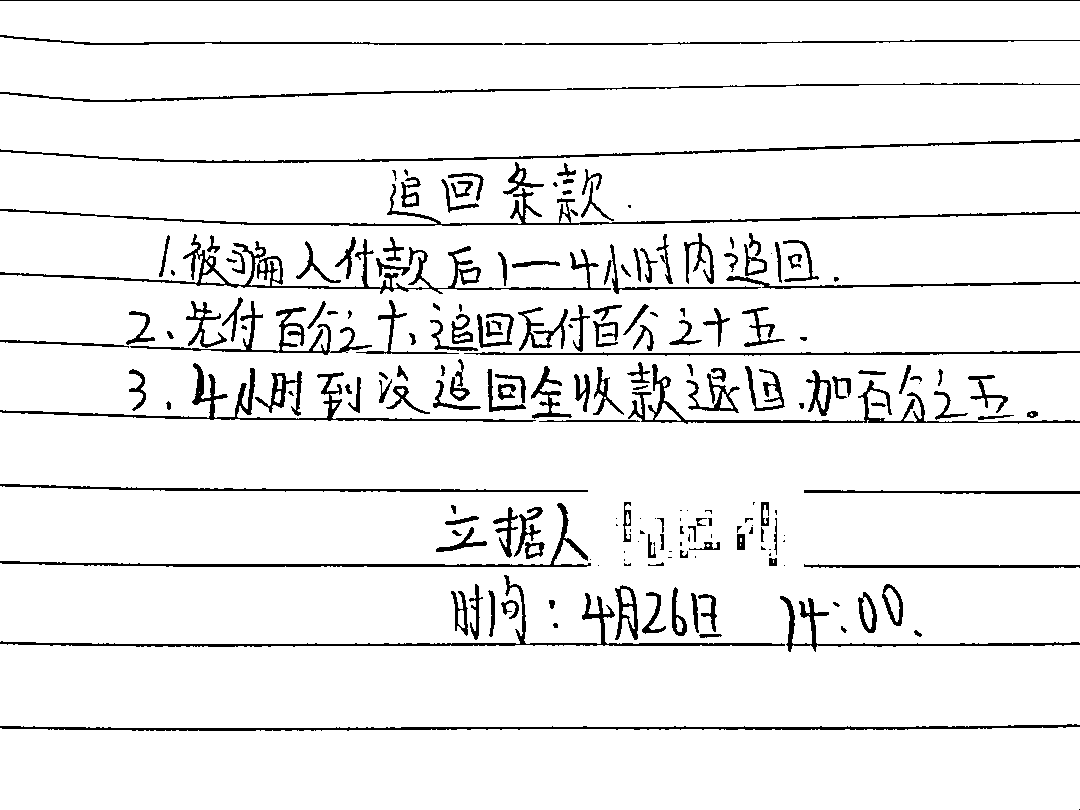 追回条款.
1.被骗人付款后1—4小时内追回.
2、先付百分之十、追回后付百分之十五.
3.4小时到没追回全收款退回.加百分之五。
立据人
时间:4月26日 14:00.